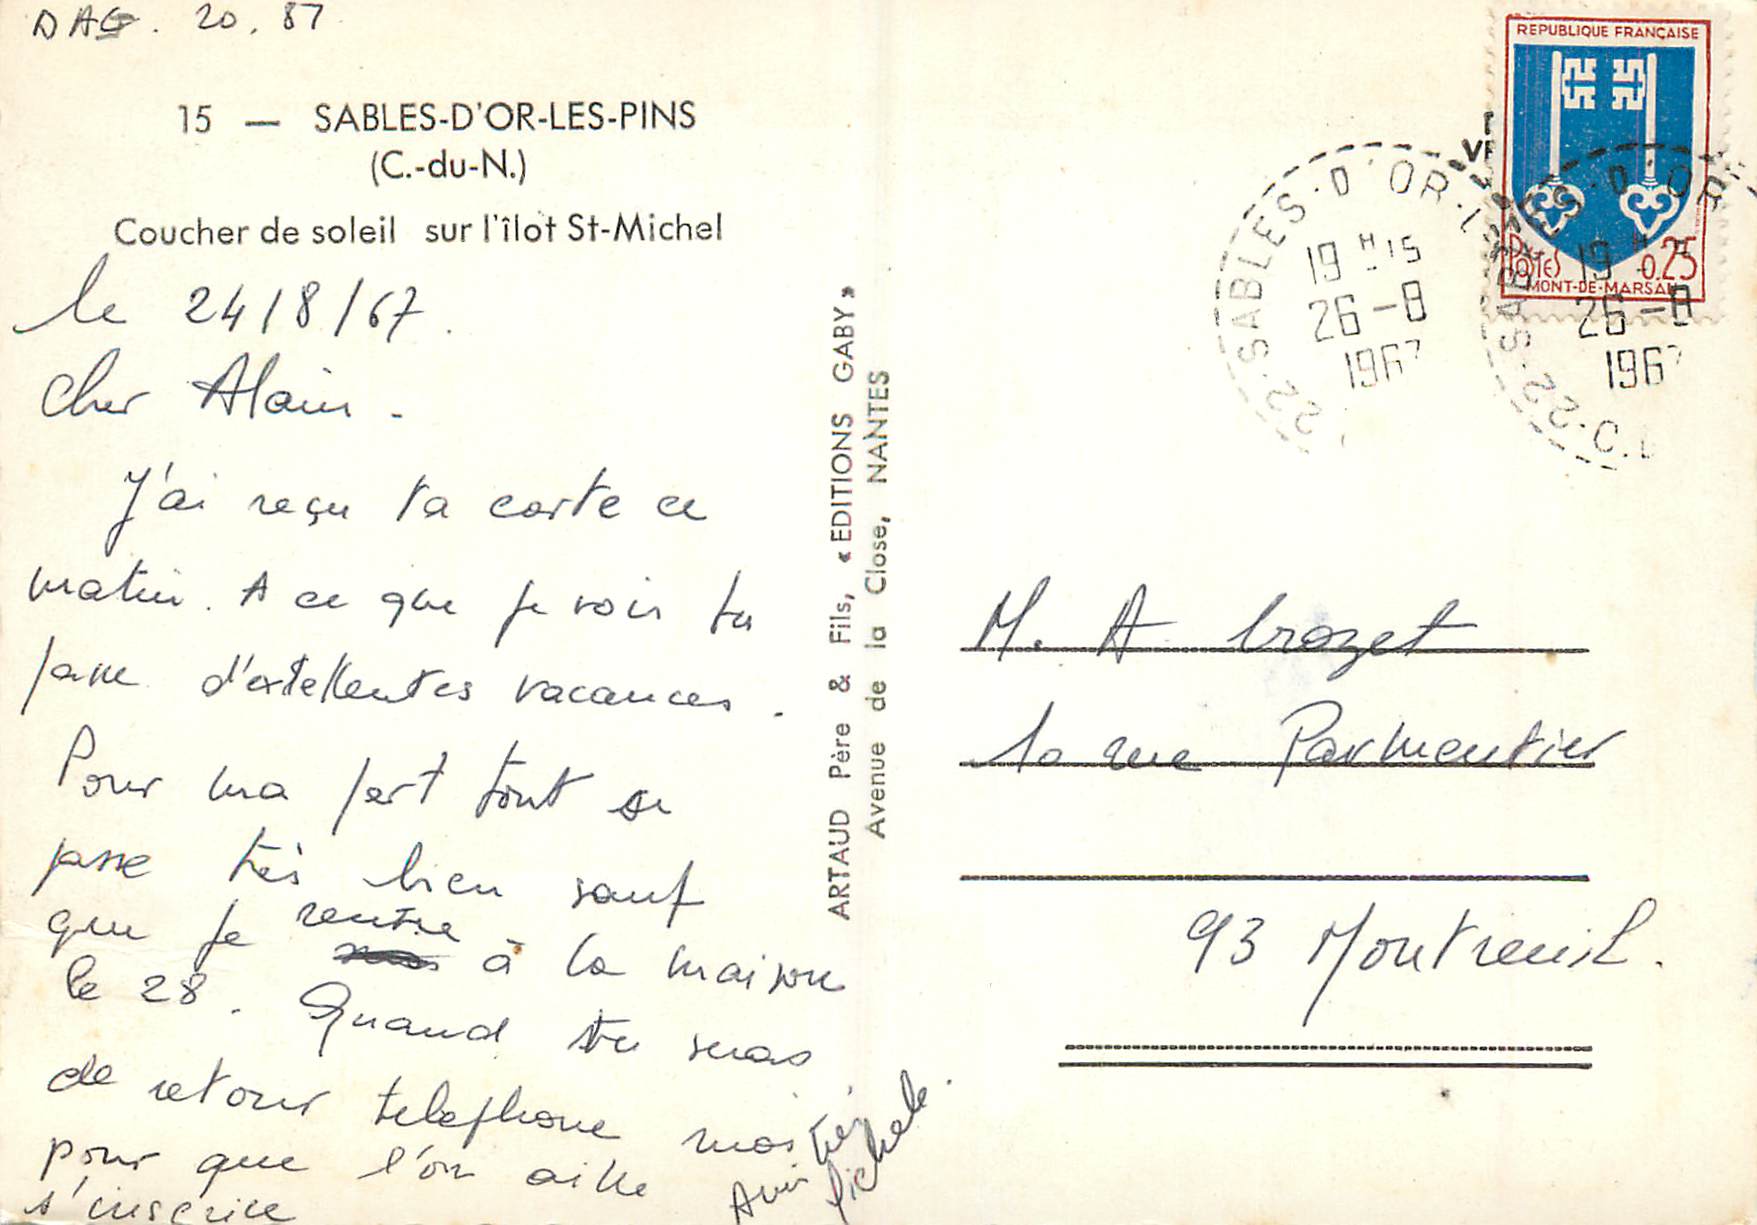 DAG. 20.87
15 — SABLES-D'OR-LES-PINS
(C.-du-N.)
Coucher de soleil sur l'îlot St-Michel
le 24/8/67.
Cher Alain.
J'ai reçu ta carte ce
matin. A ce que je vois tu
passe d'extellentes vacances.
Pour ma part tout se
passe très bien sauf
que je rentre à la maison
le 28. Quand tu seras
de retour telephone moi
pour que l'on aille
s'inscrire
Amitiés
Michele.
ARTAUD Père & Fils, « EDITIONS GABY »
Avenue de la Close, NANTES
REPUBLIQUE FRANÇAISE
POSTES 0.25
MONT-DE-MARSAN
22·SABLES·D'OR·L
19 H 15
26-8
1967
22·SABLES·D'OR
19 H
26-8
1967
M. A Crozet
10 rue Parmentier
93 Montreuil.